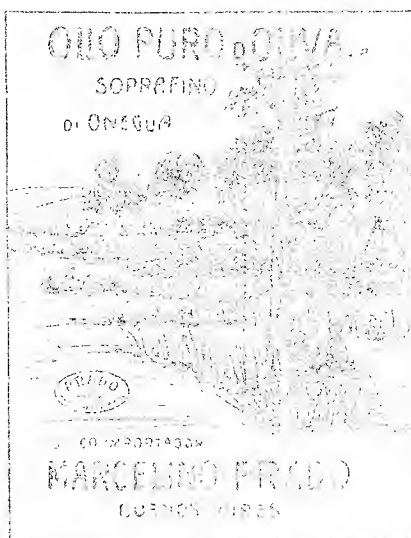 OLIO PURO D'OLIVA
SOPRAFINO
DI ONEGLIA
PRADO
IMPORTADOR
MARCELINO PRADO
BUENOS AIRES